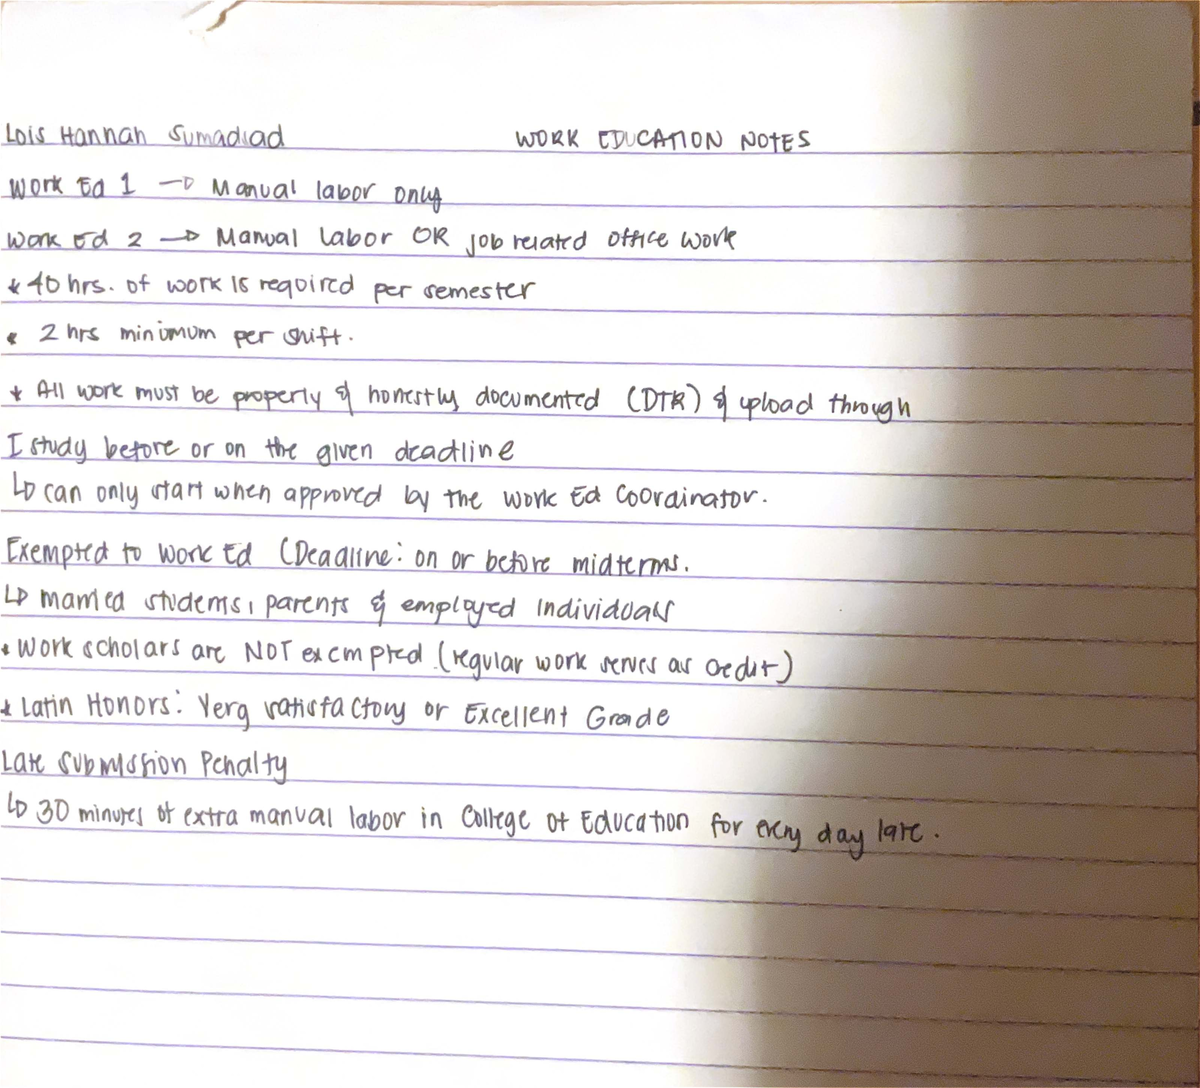 Lois Hannah Sumadiad WORK EDUCATION NOTES
Work Ed 1 → Manual labor only
Work Ed 2 → Manual Labor OR job related office work
* 40 hrs. of work is required per semester
* 2 hrs minimum per shift.
* All work must be properly & honestly documented (DTR) & upload through
I study before or on the given deadline
↳ can only start when approved by the work Ed Coordinator.
Exempted to Work Ed (Deadline: on or before midterms.
↳ married students, parents & employed individuals
* Work scholars are NOT exempted (regular work serves as credit)
* Latin Honors: Very satisfactory or Excellent Grade
Late Submission Penalty
↳ 30 minutes of extra manual labor in College of Education for every day late.